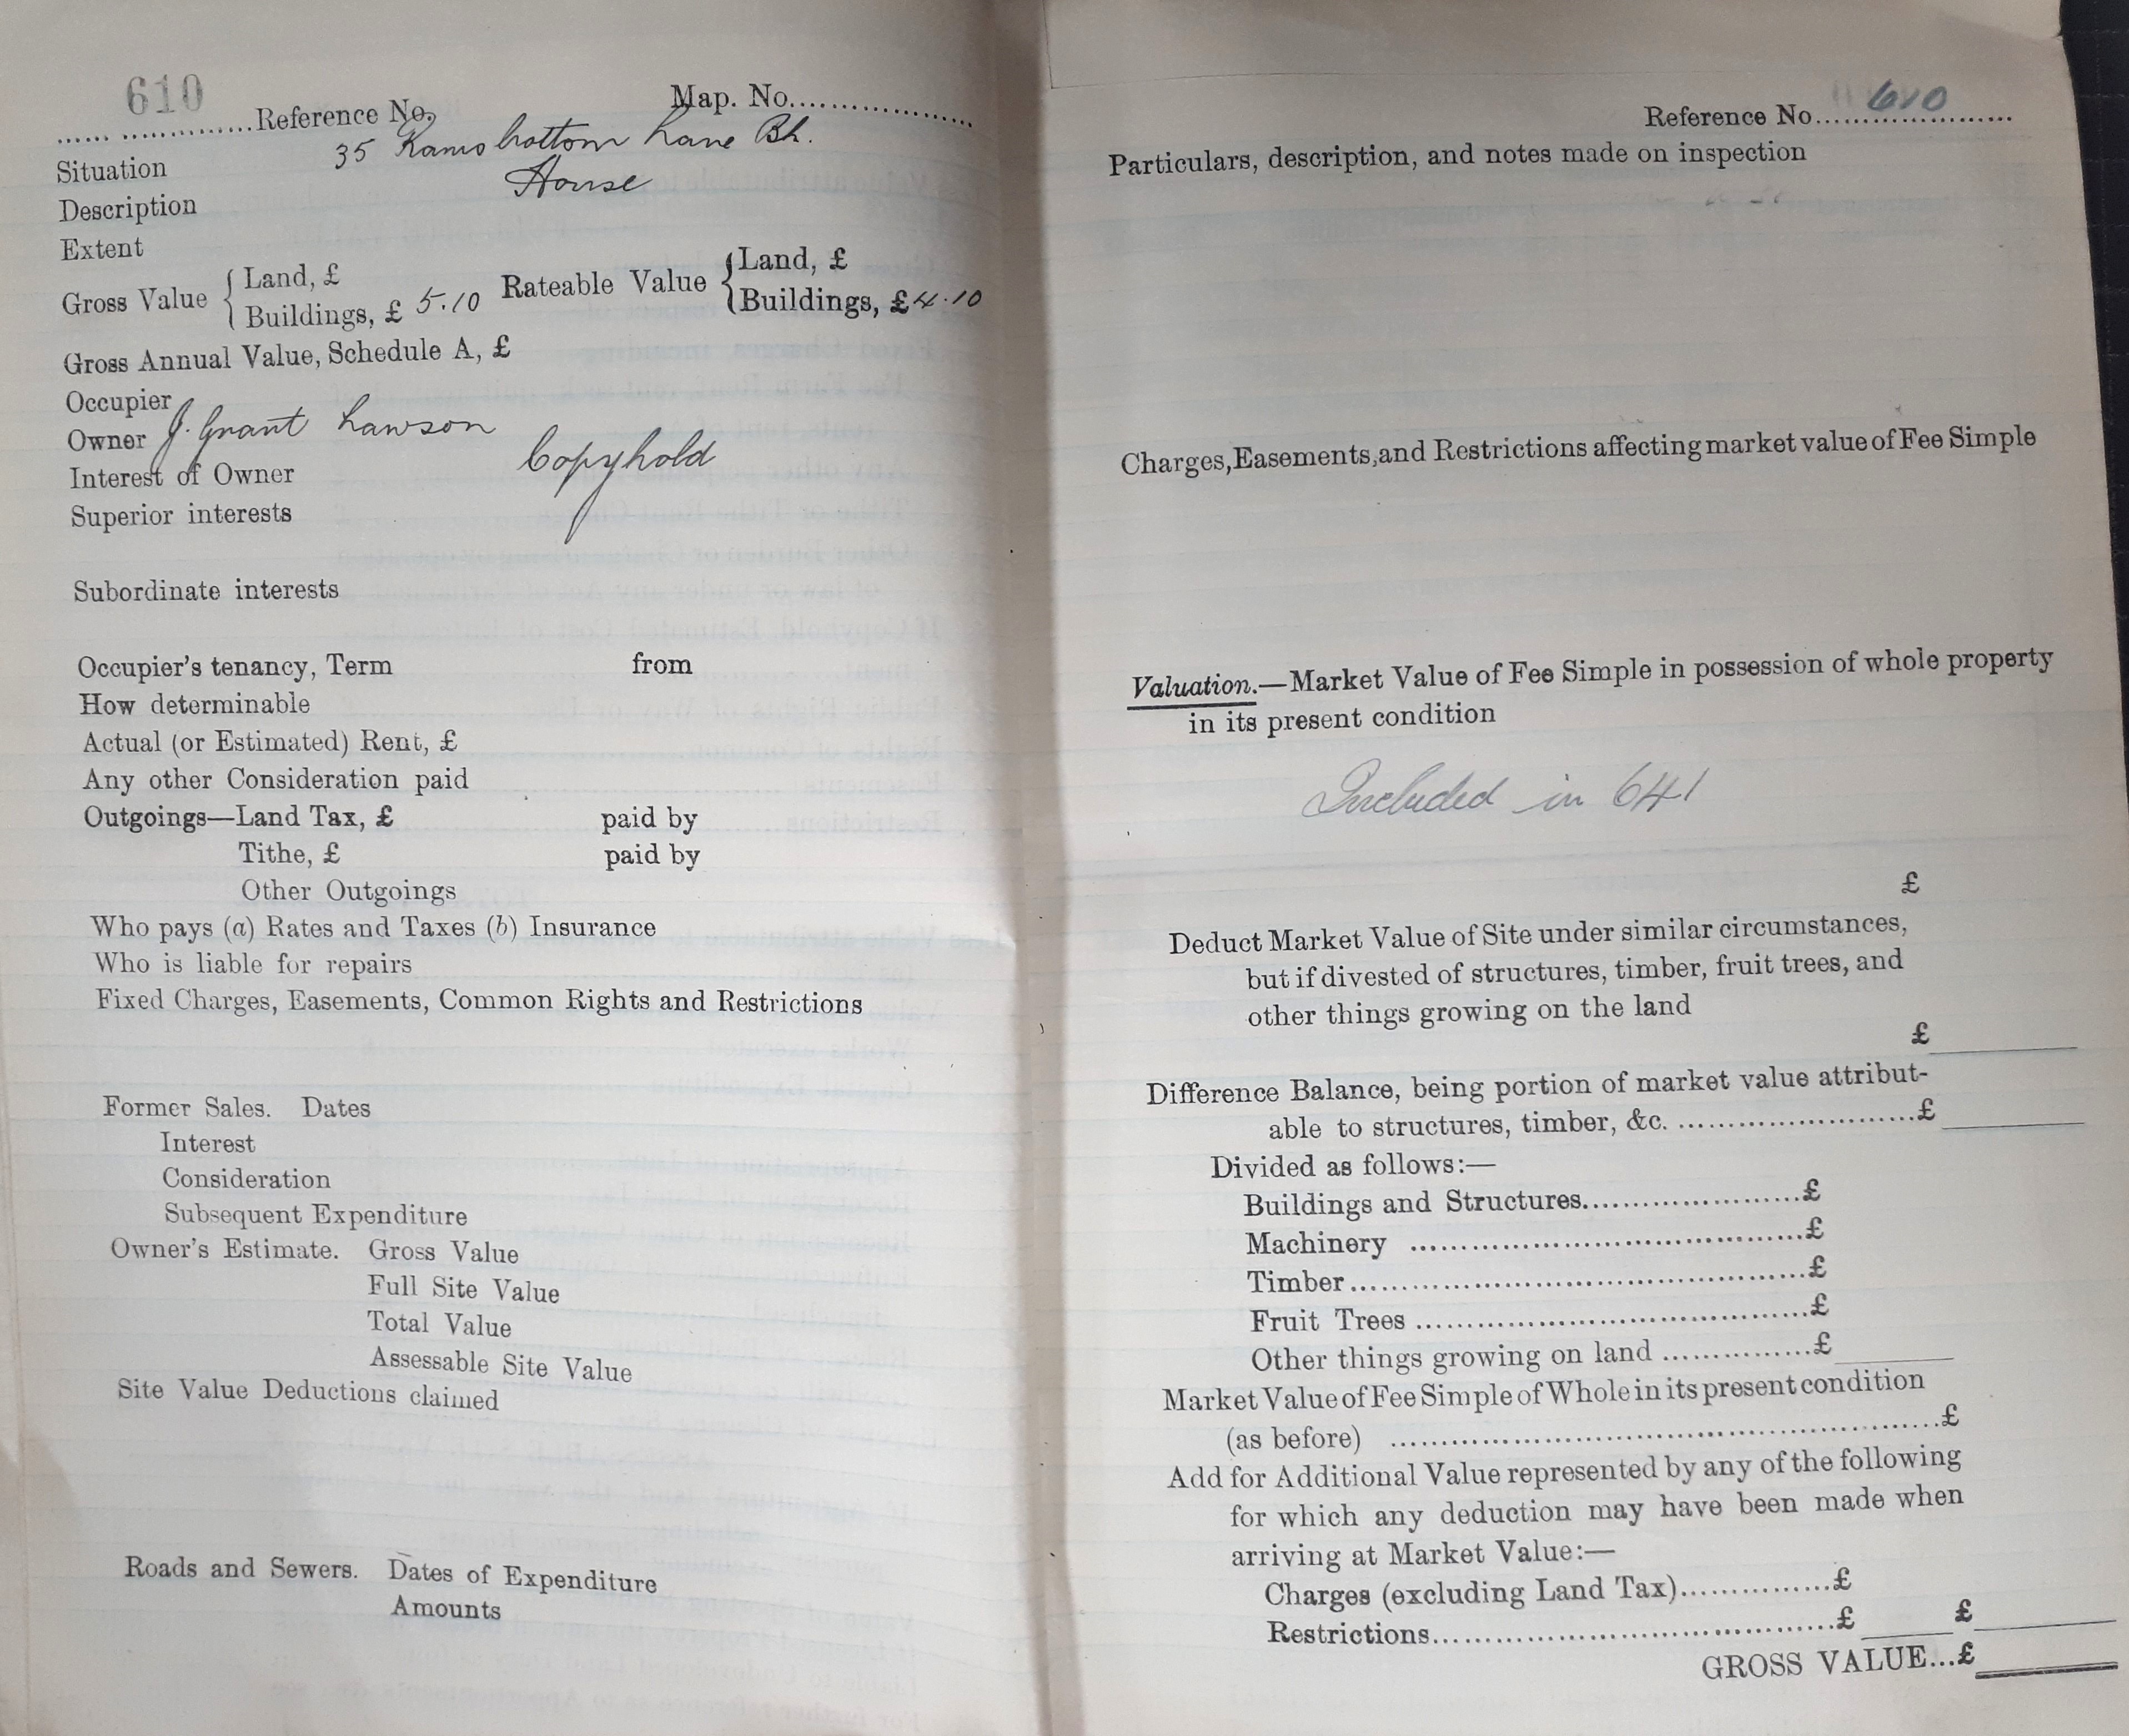 610
Reference No. Map. No.
Situation 35 Ramsbottom Lane Bk.
Description House
Extent
Gross Value { Land, £
Buildings, £ 5.10
Rateable Value { Land, £
Buildings, £ 4.10
Gross Annual Value, Schedule A, £
Occupier
Owner J. Grant Lawson
Interest of Owner Copyhold
Superior interests
Subordinate interests
Occupier's tenancy, Term from
How determinable
Actual (or Estimated) Rent, £
Any other Consideration paid
Outgoings—Land Tax, £ paid by
Tithe, £ paid by
Other Outgoings
Who pays (a) Rates and Taxes (b) Insurance
Who is liable for repairs
Fixed Charges, Easements, Common Rights and Restrictions
Former Sales. Dates
Interest
Consideration
Subsequent Expenditure
Owner's Estimate. Gross Value
Full Site Value
Total Value
Assessable Site Value
Site Value Deductions claimed
Roads and Sewers. Dates of Expenditure
Amounts
Reference No. 610
Particulars, description, and notes made on inspection
Charges, Easements, and Restrictions affecting market value of Fee Simple
Valuation.—Market Value of Fee Simple in possession of whole property
in its present condition
Included in 641
£
Deduct Market Value of Site under similar circumstances,
but if divested of structures, timber, fruit trees, and
other things growing on the land
£
Difference Balance, being portion of market value attribut-
able to structures, timber, &c. £
Divided as follows:—
Buildings and Structures £
Machinery £
Timber £
Fruit Trees £
Other things growing on land £
Market Value of Fee Simple of Whole in its present condition
(as before) £
Add for Additional Value represented by any of the following
for which any deduction may have been made when
arriving at Market Value:—
Charges (excluding Land Tax) £
Restrictions £ £
GROSS VALUE...£